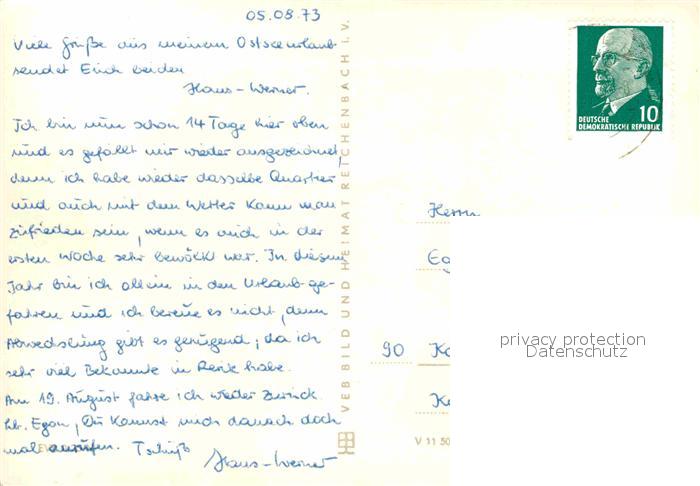 05.08.73
Viele Grüße aus meinem Ostseeurlaub
sendet Euch beiden
Hans-Werner.
Ich bin nun schon 14 Tage hier oben
und es gefällt mir wieder ausgezeichnet,
denn ich habe wieder dasselbe Quartier
und auch mit dem Wetter kann man
zufrieden sein, wenn es auch in der
ersten Woche sehr bewölkt war. In diesem
Jahr bin ich allein in den Urlaub ge-
fahren und ich bereue es nicht, denn
Abwechslung gibt es genügend, da ich
sehr viel Bekannte in Rerik habe.
Am 19. August fahre ich wieder zurück.
Lb. Egon, Du kannst mich danach doch
mal anrufen. Tschüß
Hans-Werner
VEB BILD UND HEIMAT REICHENBACH I. V.
DEUTSCHE
DEMOKRATISCHE REPUBLIK
10
Herrn
Eg
90 Ka
V 11 50
privacy protection
Datenschutz